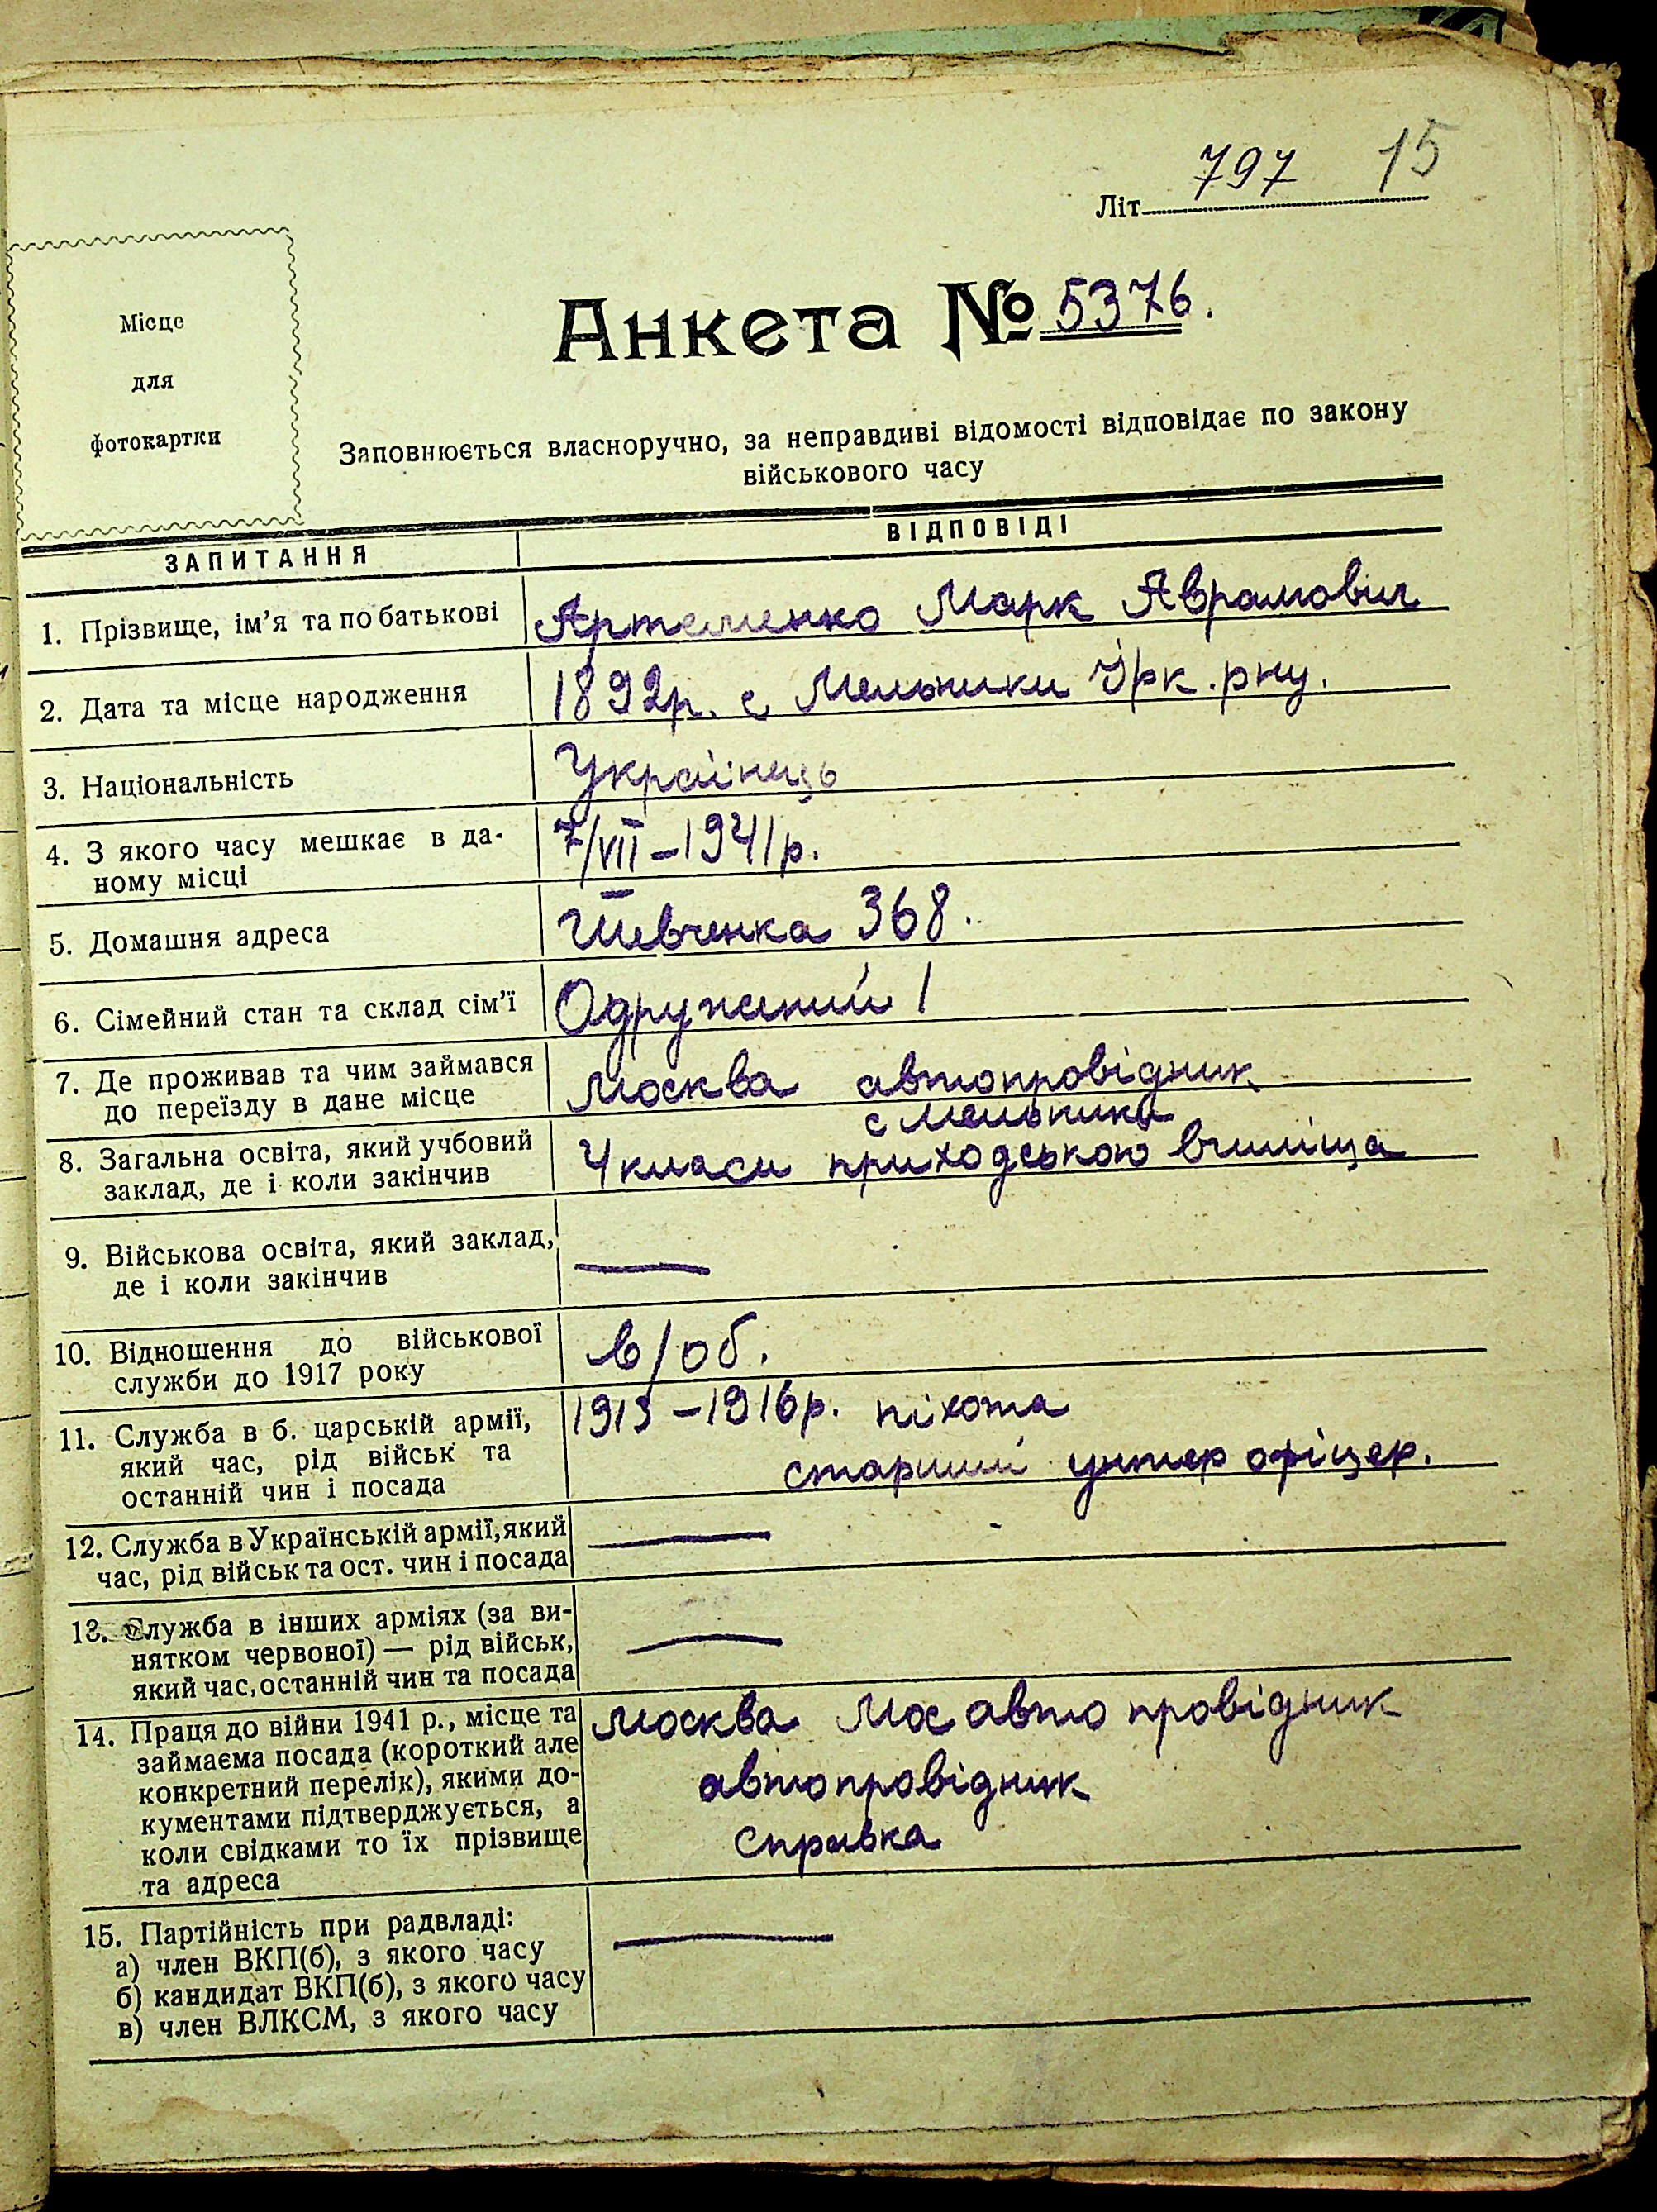 797 15
Літ
Місце
для
фотокартки
Анкета № 5376.
Заповнюється власноручно, за неправдиві відомості відповідає по закону
військового часу
ЗАПИТАННЯ ВІДПОВІДІ
1. Прізвище, ім’я та по батькові Артеменко Марк Аврамович
2. Дата та місце народження 1892р. с Мельники Ірк. рну.
3. Національність Українець
4. З якого часу мешкає в да-
ному місці 7/VII – 1941 р.
5. Домашня адреса Шевченка 368.
6. Сімейний стан та склад сім’ї Одружений 1
7. Де проживав та чим займався
до переїзду в дане місце Москва автопровідник
с Мельники
8. Загальна освіта, який учбовий
заклад, де і коли закінчив 4 класи приходською вчиліща
9. Військова освіта, який заклад,
де і коли закінчив —
10. Відношення до військової
служби до 1917 року в/об.
11. Служба в б. царській армії,
який час, рід військ та
останній чин і посада
1913 – 1916 р. піхота
старший унтер офіцер.
12. Служба в Українській армії, який
час, рід військ та ост. чин і посада —
13. Служба в інших арміях (за ви-
нятком червоної) — рід військ,
який час, останній чин та посада —
14. Праця до війни 1941 р., місце та
займаєма посада (короткий але
конкретний перелік), якими до-
кументами підтверджується, а
коли свідками то їх прізвище
та адреса
Москва Мос авто провідник
автопровідник
справка
15. Партійність при радвладі: —
а) член ВКП(б), з якого часу
б) кандидат ВКП(б), з якого часу
в) член ВЛКСМ, з якого часу